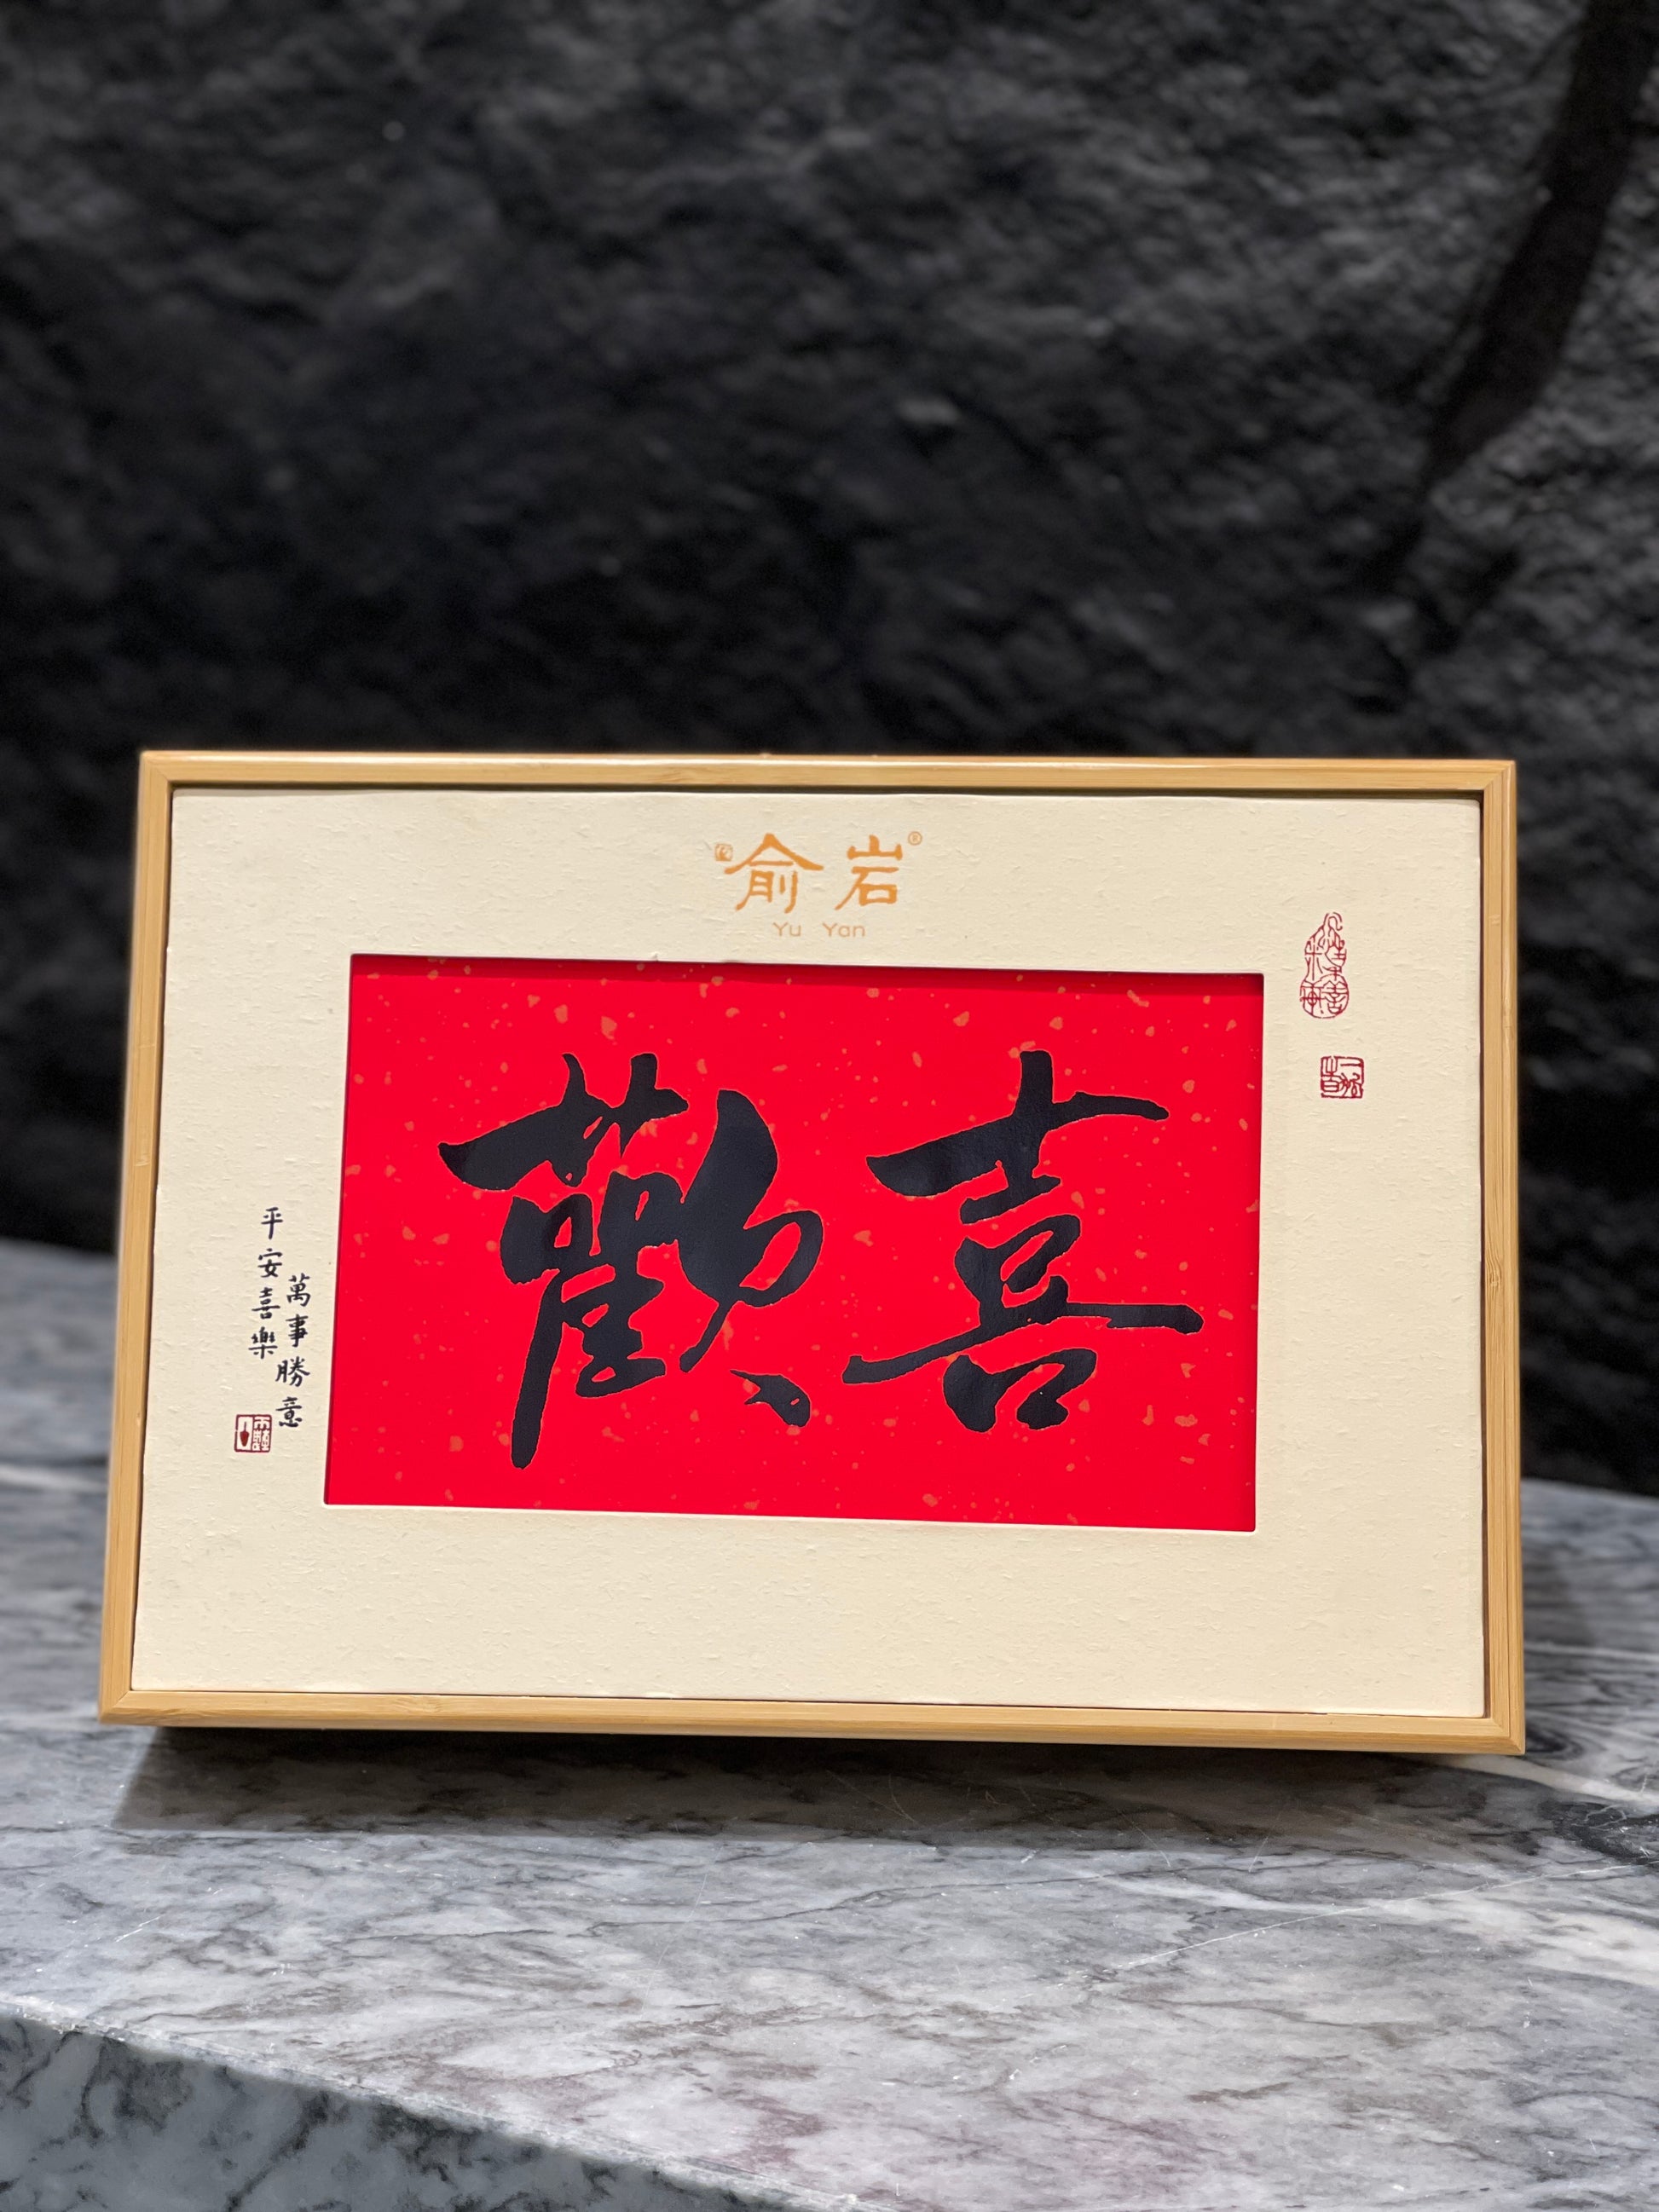 俞岩®
Yu Yan
喜歡
萬事勝意
平安喜樂